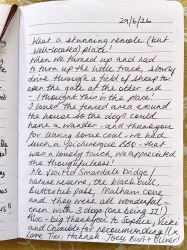 29/6/26
What a stunning remote (but
well-located) place!
When we turned up and had
to turn up the little track, slowly
drive through a field of sheep to
open the gate at the other end
- I thought this is the place.
I loved the fenced area around
the house so the dogs could
have a wander - and thankyou
for leaving some coal - we held
such a BBQ - that
was a lovely touch, we appreciated
the thoughtfulness!
We visited Smardale bridge/
nature reserve, the Buttertubs,
Buttertubs pass, Malham Cove
and they were all wonderful
even with 3 dogs (one being 11!)
Also a big thankyou to Sophie, Vicki
and for recommending!! x
Love Tim, Hannah,